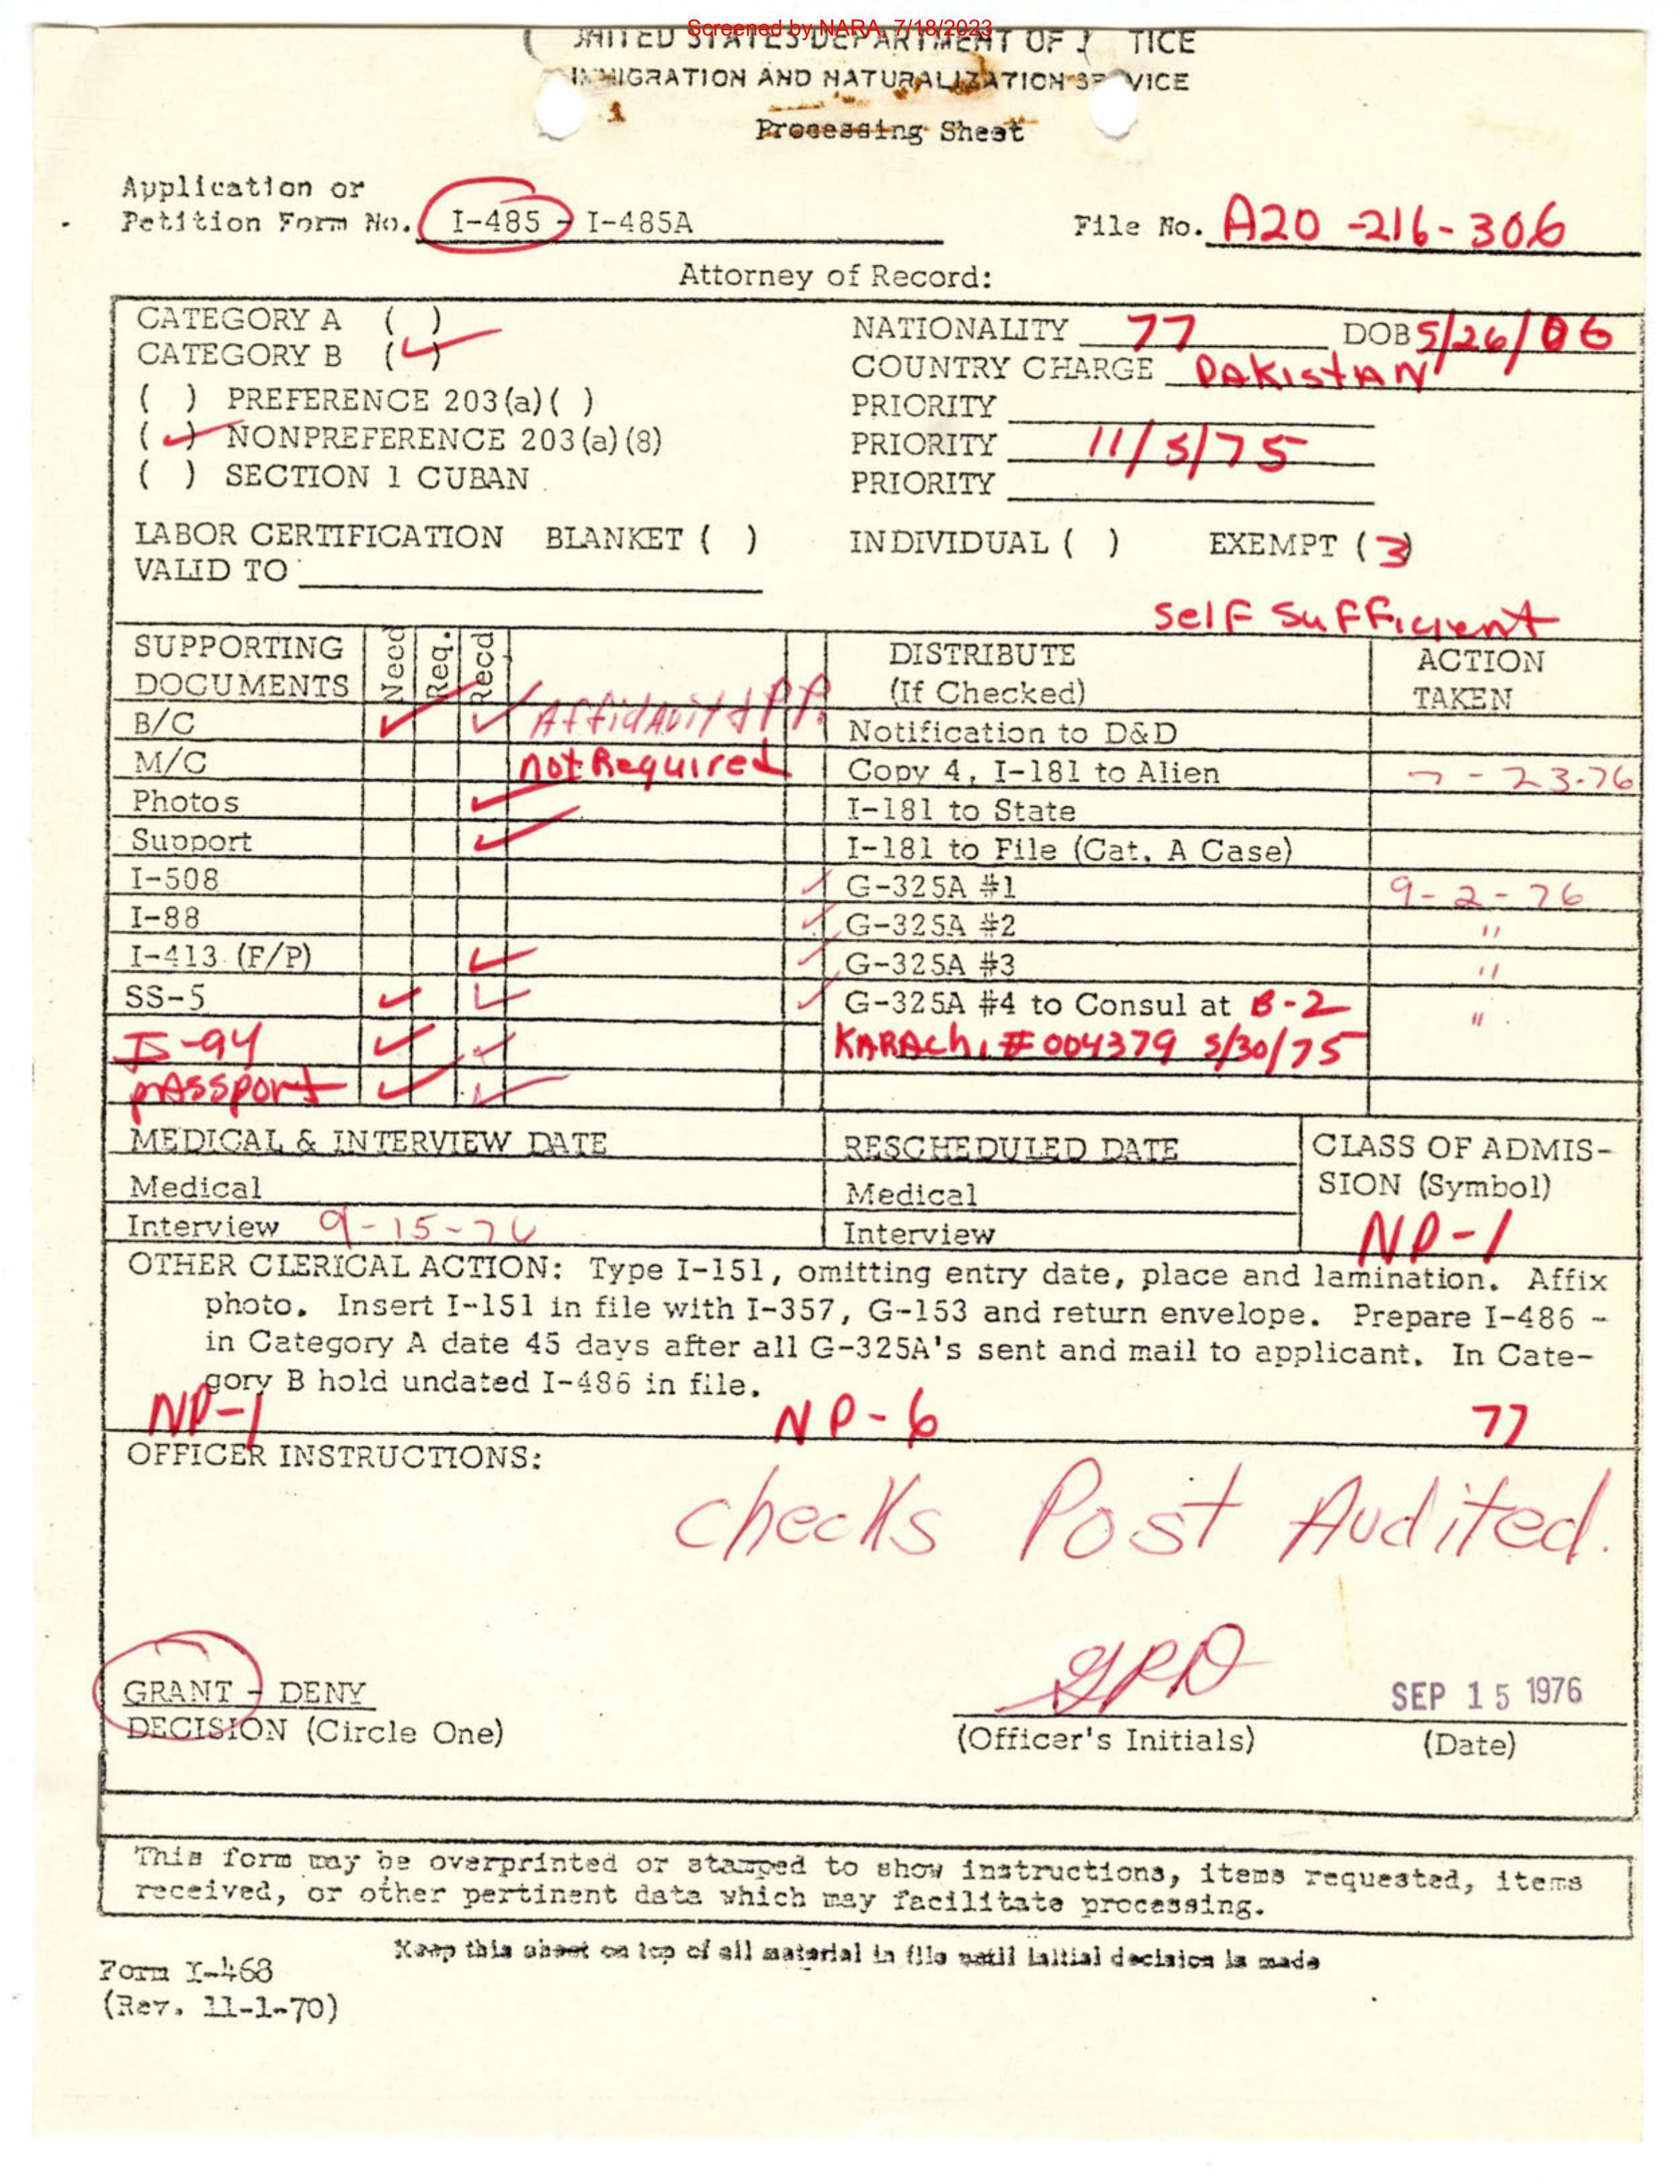 Screened by NARA, 7/18/2023
UNITED STATES DEPARTMENT OF J TICE
IMMIGRATION AND NATURALIZATION SE VICE
Processing Sheet
Application or
Petition Form No. I-485 - I-485A
File No. A20-216-306
Attorney of Record:
CATEGORY A ( )
CATEGORY B (✓)
NATIONALITY 77 DOB 5/26/06
COUNTRY CHARGE PAKISTAN
( ) PREFERENCE 203(a)( )
PRIORITY
(✓) NONPREFERENCE 203(a)(8)
PRIORITY 11/5/75
( ) SECTION 1 CUBAN
PRIORITY
LABOR CERTIFICATION BLANKET ( ) INDIVIDUAL ( ) EXEMPT (3)
VALID TO
Self Sufficient
SUPPORTING DOCUMENTS Need Req. Recd
DISTRIBUTE (If Checked) ACTION TAKEN
B/C ✓ ✓ Affidavit & P.P. Notification to D&D
M/C not Required Copy 4, I-181 to Alien 7-23-76
Photos ✓ I-181 to State
Support ✓ I-181 to File (Cat. A Case)
I-508 ✓ G-325A #1 9-2-76
I-88 ✓ G-325A #2 "
I-413 (F/P) ✓ ✓ G-325A #3 "
SS-5 ✓ ✓ ✓ G-325A #4 to Consul at B-2 "
I-94 ✓ ✓ KARAchi # 004379 5/30/75
PASSPORT ✓ ✓
MEDICAL & INTERVIEW DATE RESCHEDULED DATE CLASS OF ADMIS-
SION (Symbol)
Medical Medical
Interview 9-15-76 Interview NP-1
OTHER CLERICAL ACTION: Type I-151, omitting entry date, place and lamination. Affix
photo. Insert I-151 in file with I-357, G-153 and return envelope. Prepare I-486 -
in Category A date 45 days after all G-325A's sent and mail to applicant. In Cate-
gory B hold undated I-486 in file.
NP-1 NP-6 77
OFFICER INSTRUCTIONS:
checks Post Audited.
GRANT - DENY
DECISION (Circle One)
GPD SEP 15 1976
(Officer's Initials) (Date)
This form may be overprinted or stamped to show instructions, items requested, items
received, or other pertinent data which may facilitate processing.
Keep this sheet on top of all material in file until initial decision is made
Form I-468
(Rev. 11-1-70)